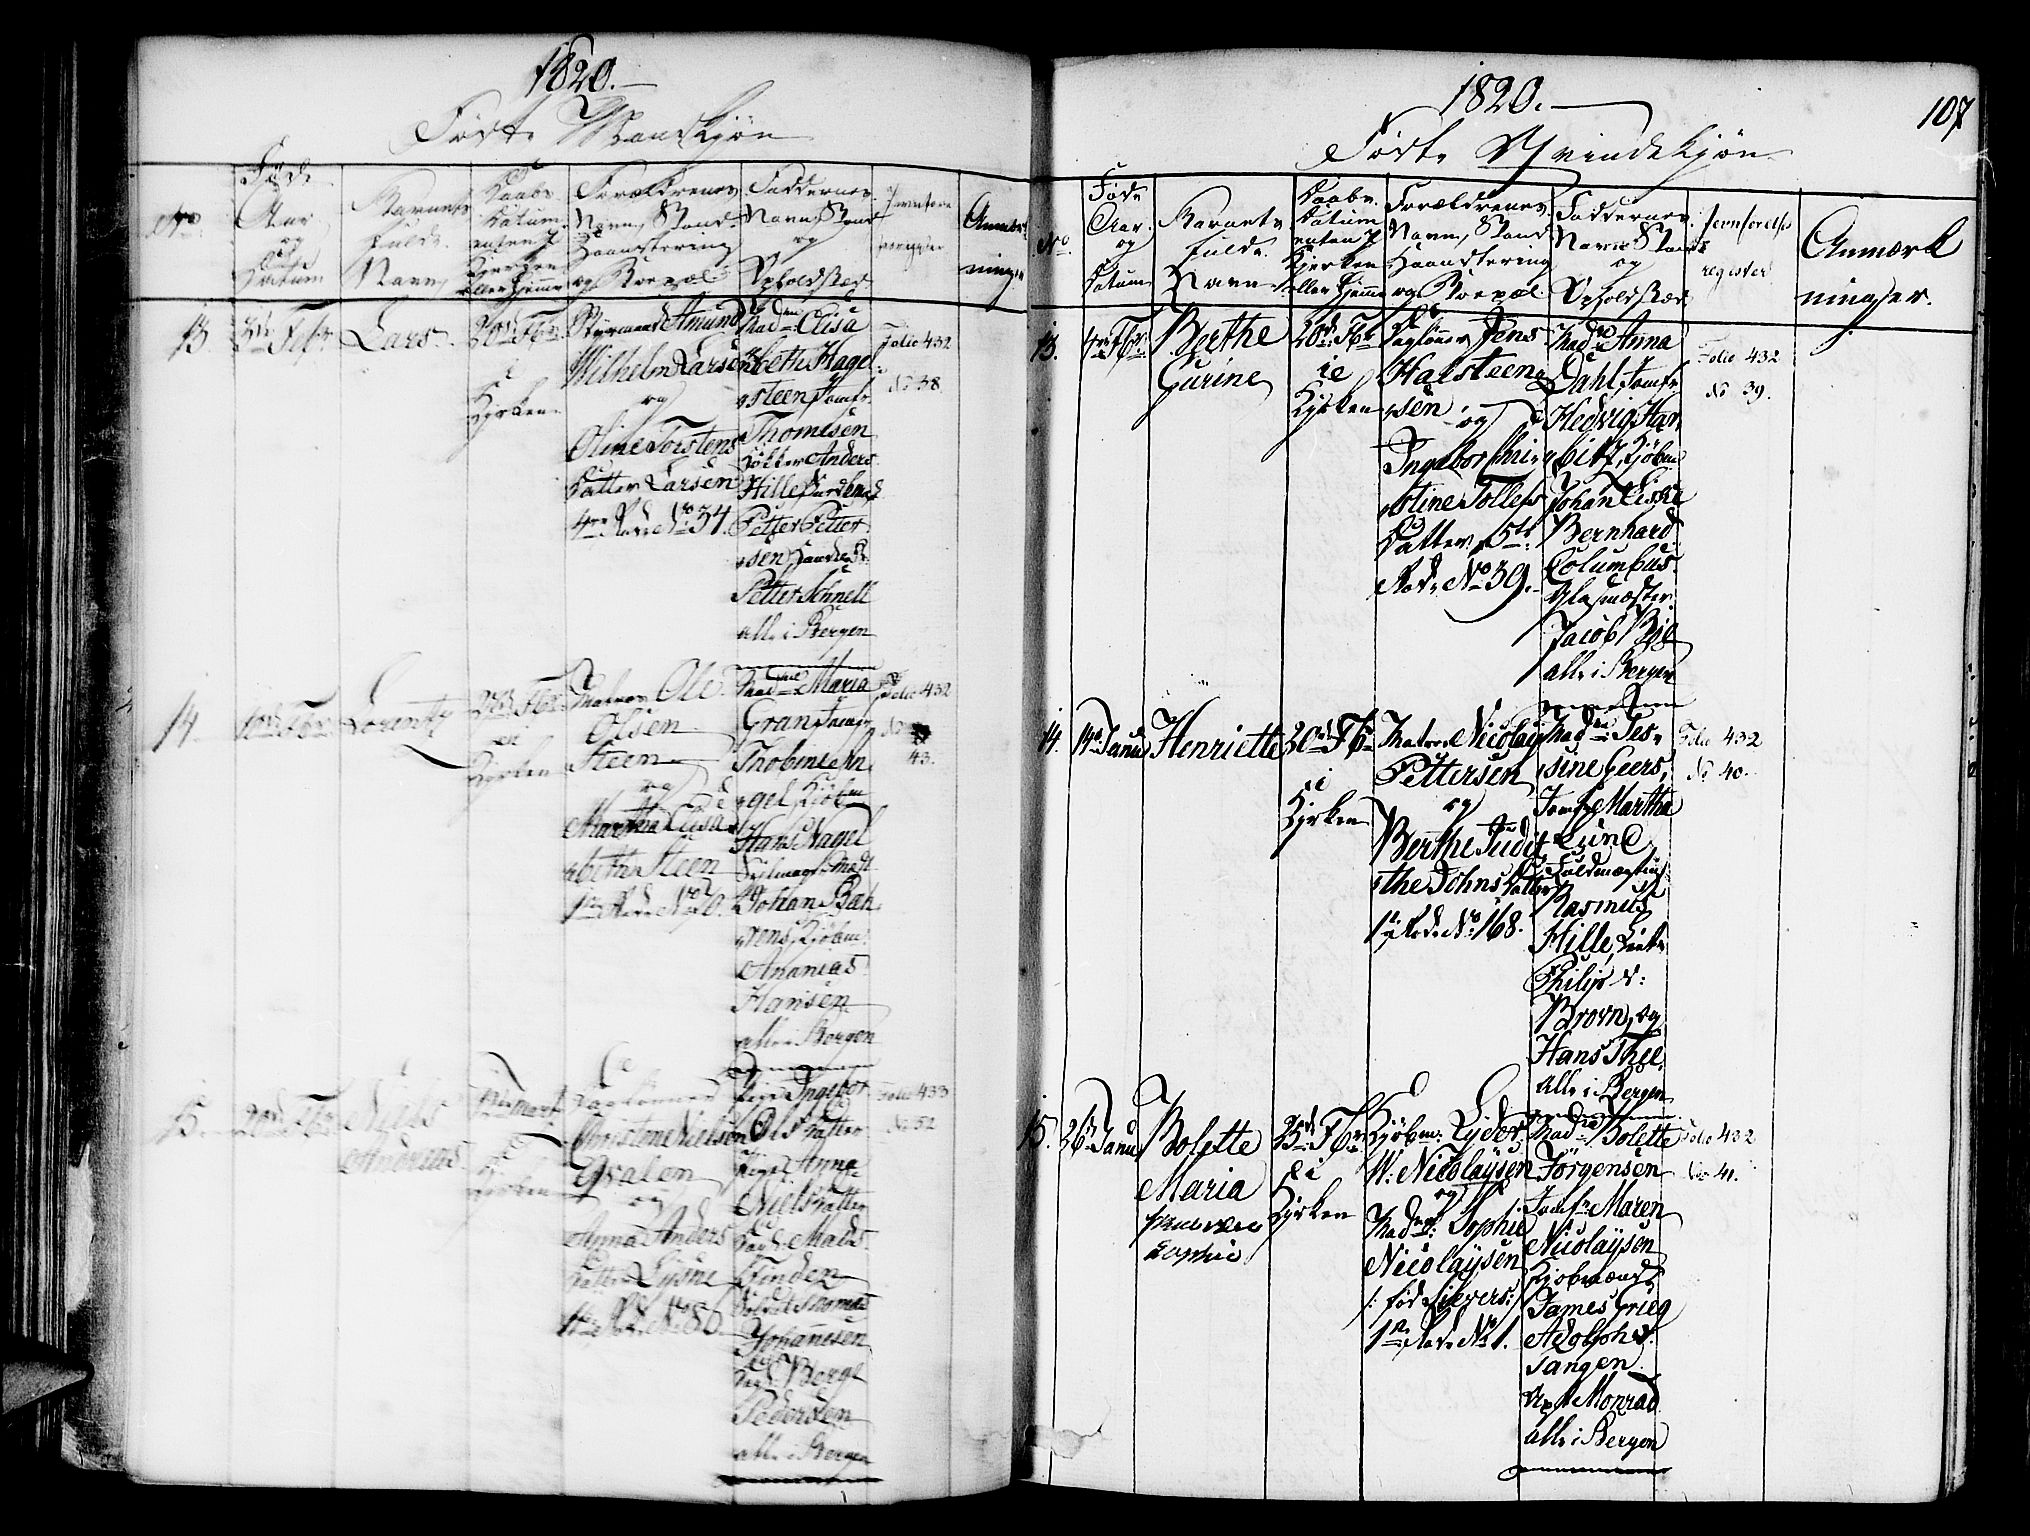 1820.
Födte Mandkjön
No.
Føde Aar og Datum
Barnets fulde Navn,
Daabs Datum enten i Kjerken eller hjemme
Forældrenes Navn, Stand Haandtering og Boepæl
Faddernes Navn, Stand og Opholdsted
register
Anmærk
ninger
13.
3de Febr.
Lars
20de Febr.
i
Kjrken
Amund
Wilhelm Larsen
og
Oline Torstens
Datter Larsen
4re Rode No 34.
Madme Elisa
beth Hagel
steen, Jomfr.
Thomesen
Anders
Hille
Petter Petter
sen
Petter Schnell
alle i Bergen
Folio 432
No 38
14.
10de Febr
Lorentz
27de Febr
i
Kjrken
Ole
Olsen
Steen
og
Martha Elisa
beth Steen
1te Rode No 70.
Madme Maria
Gran, Jomfr
Hans Nagel
Johan Bah
rens, Kjøbm.
Ananias
Hansen
alle i Bergen
Folio 432
No
43.
15.
20de Febr
Niels
Andreas
12te Marti
i
Kjrken
Daglønner
Christen Nielsen
Qvalen
og
Anna Anders
Datter Lysne
1te Rode No 80
Pige Ingebor
Ols Datter
Pige Anna
Niels Datter
Dagl. Mads
Finden
Soldat Thomas
Johannesen
Dagl. Børge
Pedersen
alle i Bergen
Folio 433
No 52
1820.
107
Födte Qvindekjön
No.
Føde Aar. og Datum
Barnets fulde Navn
Daabs Datum enten i Kjerken eller hjemme
Forældrenes Navn, Stand Haandtering og Boepæl
Faddernes Navn Stand og Opholdsted
Jevnførelses
register
Anmærk
ninger.
13.
4re Febr.
Berthe
Gurine
20de Febr
i
Kjrken
Dagløner Jens
Halsteen
sen og
Ingebor Chri
stine Tollefs
Datter, 5te
Rode No 39.
Madme Anna
Dahl, Jomfr
Hedvig Har
bitz, Kjøbm
Johan
Bernhard
Columbus
Glasmæster
Jacob Bøe
alle i Bergen
Folio 432
No 39.
14.
14de Janu
Henriette
20de Febr
i
Kjrken
Matros Nicolay
Pettersen
og
Berthe Judi
the Johns Datter
1te Rode No 168.
Madme Jes
sine Geers,
Jomfr Martha
Lund
Fuldmægtig
Rasmus
Hille,
Philip d:
Brown, og
Hans Thee
alle i Bergen
Folio 432
No 40.
15.
26de Janu
Bolette
Maria
Sophie
25de Febr
i
Kjrken
Kjøbm: Lyder
W: Nicolaysen
og
Madme Sophie
Nicolaysen
/: fød Sievers:/
1te Rode No 1.
Madme Bolette
Jørgensen
Jomfr Maren
Nicolaysen
Kjøbmænd
James Grieg
Adolph d:
Tangen
og Monrad
alle i Bergen
Folio 432
No 41.